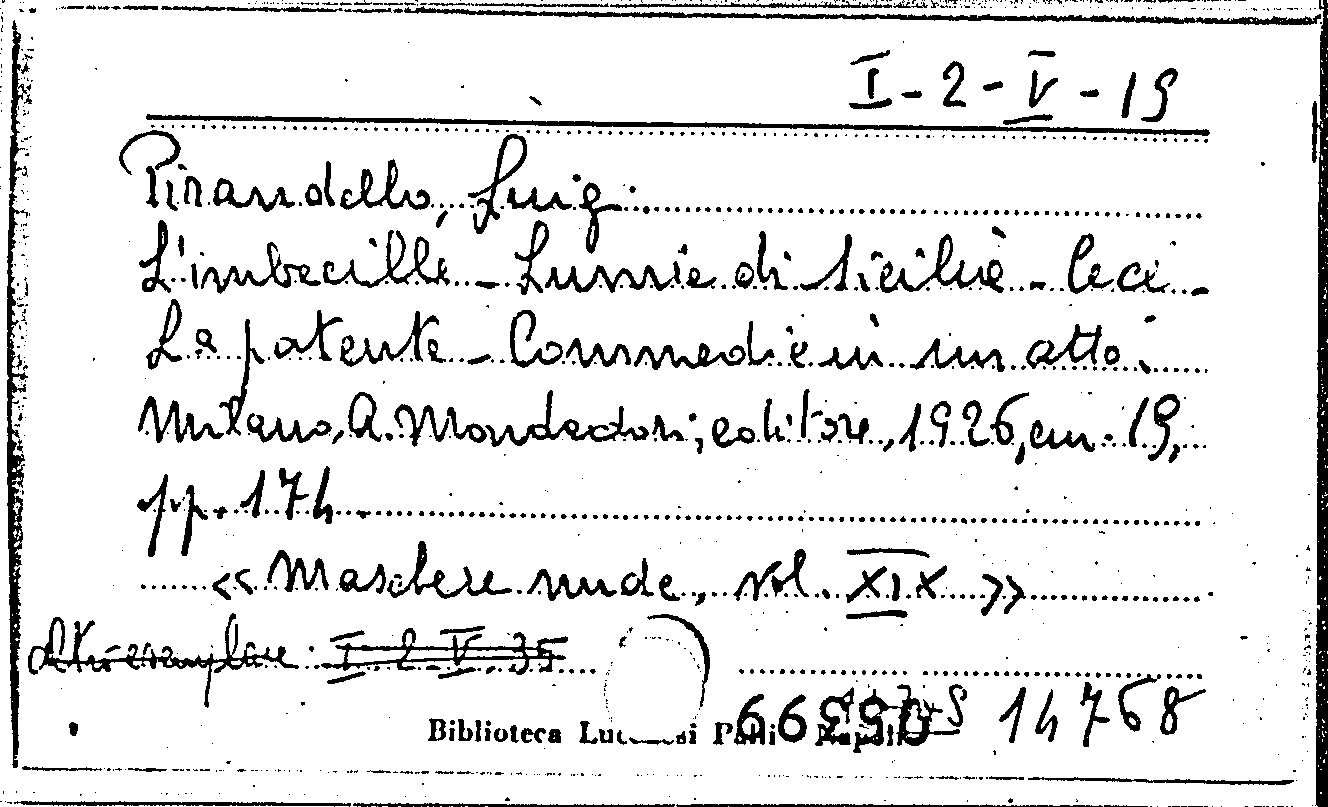 I-2-V-19
Pirandello, Luigi.
L'imbecille - Lumie di Sicilia - Cecè -
La patente - Commedie in un atto.
Milano, A. Mondadori, editore, 1926, cm. 19,
pp. 174.
« Maschere nude, vol. XIX »
Altro esemplare: I-2-V-35
Biblioteca Lucchesi Palli Napoli
14768